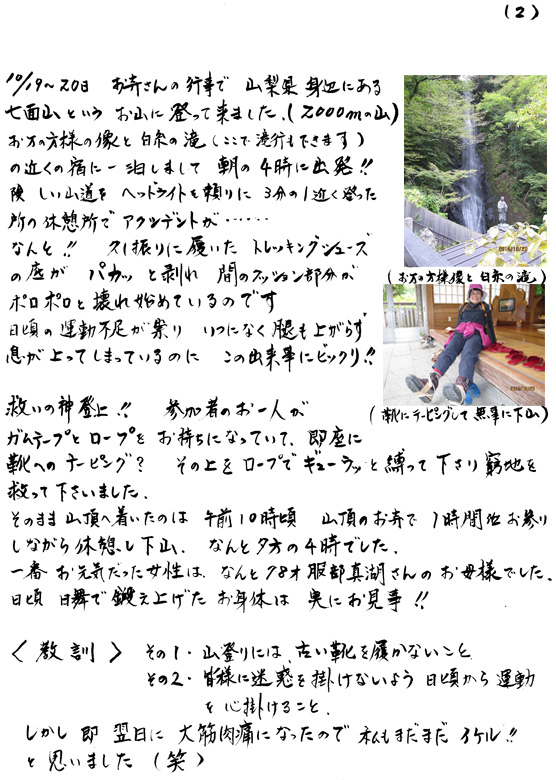 (2)
10/19〜20日 お寺さんの行事で 山梨県 身延にある
七面山という お山に 登って来ました.(2000mの山)
お万の方様の像と 白糸の滝 (ここで滝行もできます)
の近くの宿に一泊しまして 朝の4時に出発!!
険しい山道を ヘッドライトを頼りに 3分の1近く登った
所の休憩所で アクシデントが……
なんと!! 久し振りに履いた トレッキングシューズ
の底が パカッ と剥れ 間のクッション部分が
ボロボロと壊れ始めているのです
日頃の運動不足が祟り いつになく腿も上がらず
息が上ってしまっているのに この出来事にビックリ!!
(お万の方様像と白糸の滝)
救いの神登上!! 参加者のお一人が
(靴にテーピングして 無事に下山)
ガムテープとロープを お持ちになっていて、即座に
靴へのテーピング? その上をロープでギューッと縛って下さり窮地を
救って下さいました.
そのまま山頂へ着いたのは 午前10時頃 山頂のお寺で 1時間位お参り
しながら休憩し下山. なんと夕方の4時でした.
一番 お元気だった女性は、なんと78才 服部真湖さんのお母様でした.
日頃 日舞で鍛え上げた お身体は 実にお見事!!
〈教訓〉 その1・山登りには、古い靴を履かないこと
その2・皆様に迷惑を掛けないよう 日頃から運動
を心掛けること.
しかし 即 翌日に 大筋肉痛になったので 私もまだまだ イケル!!
と思いました (笑)